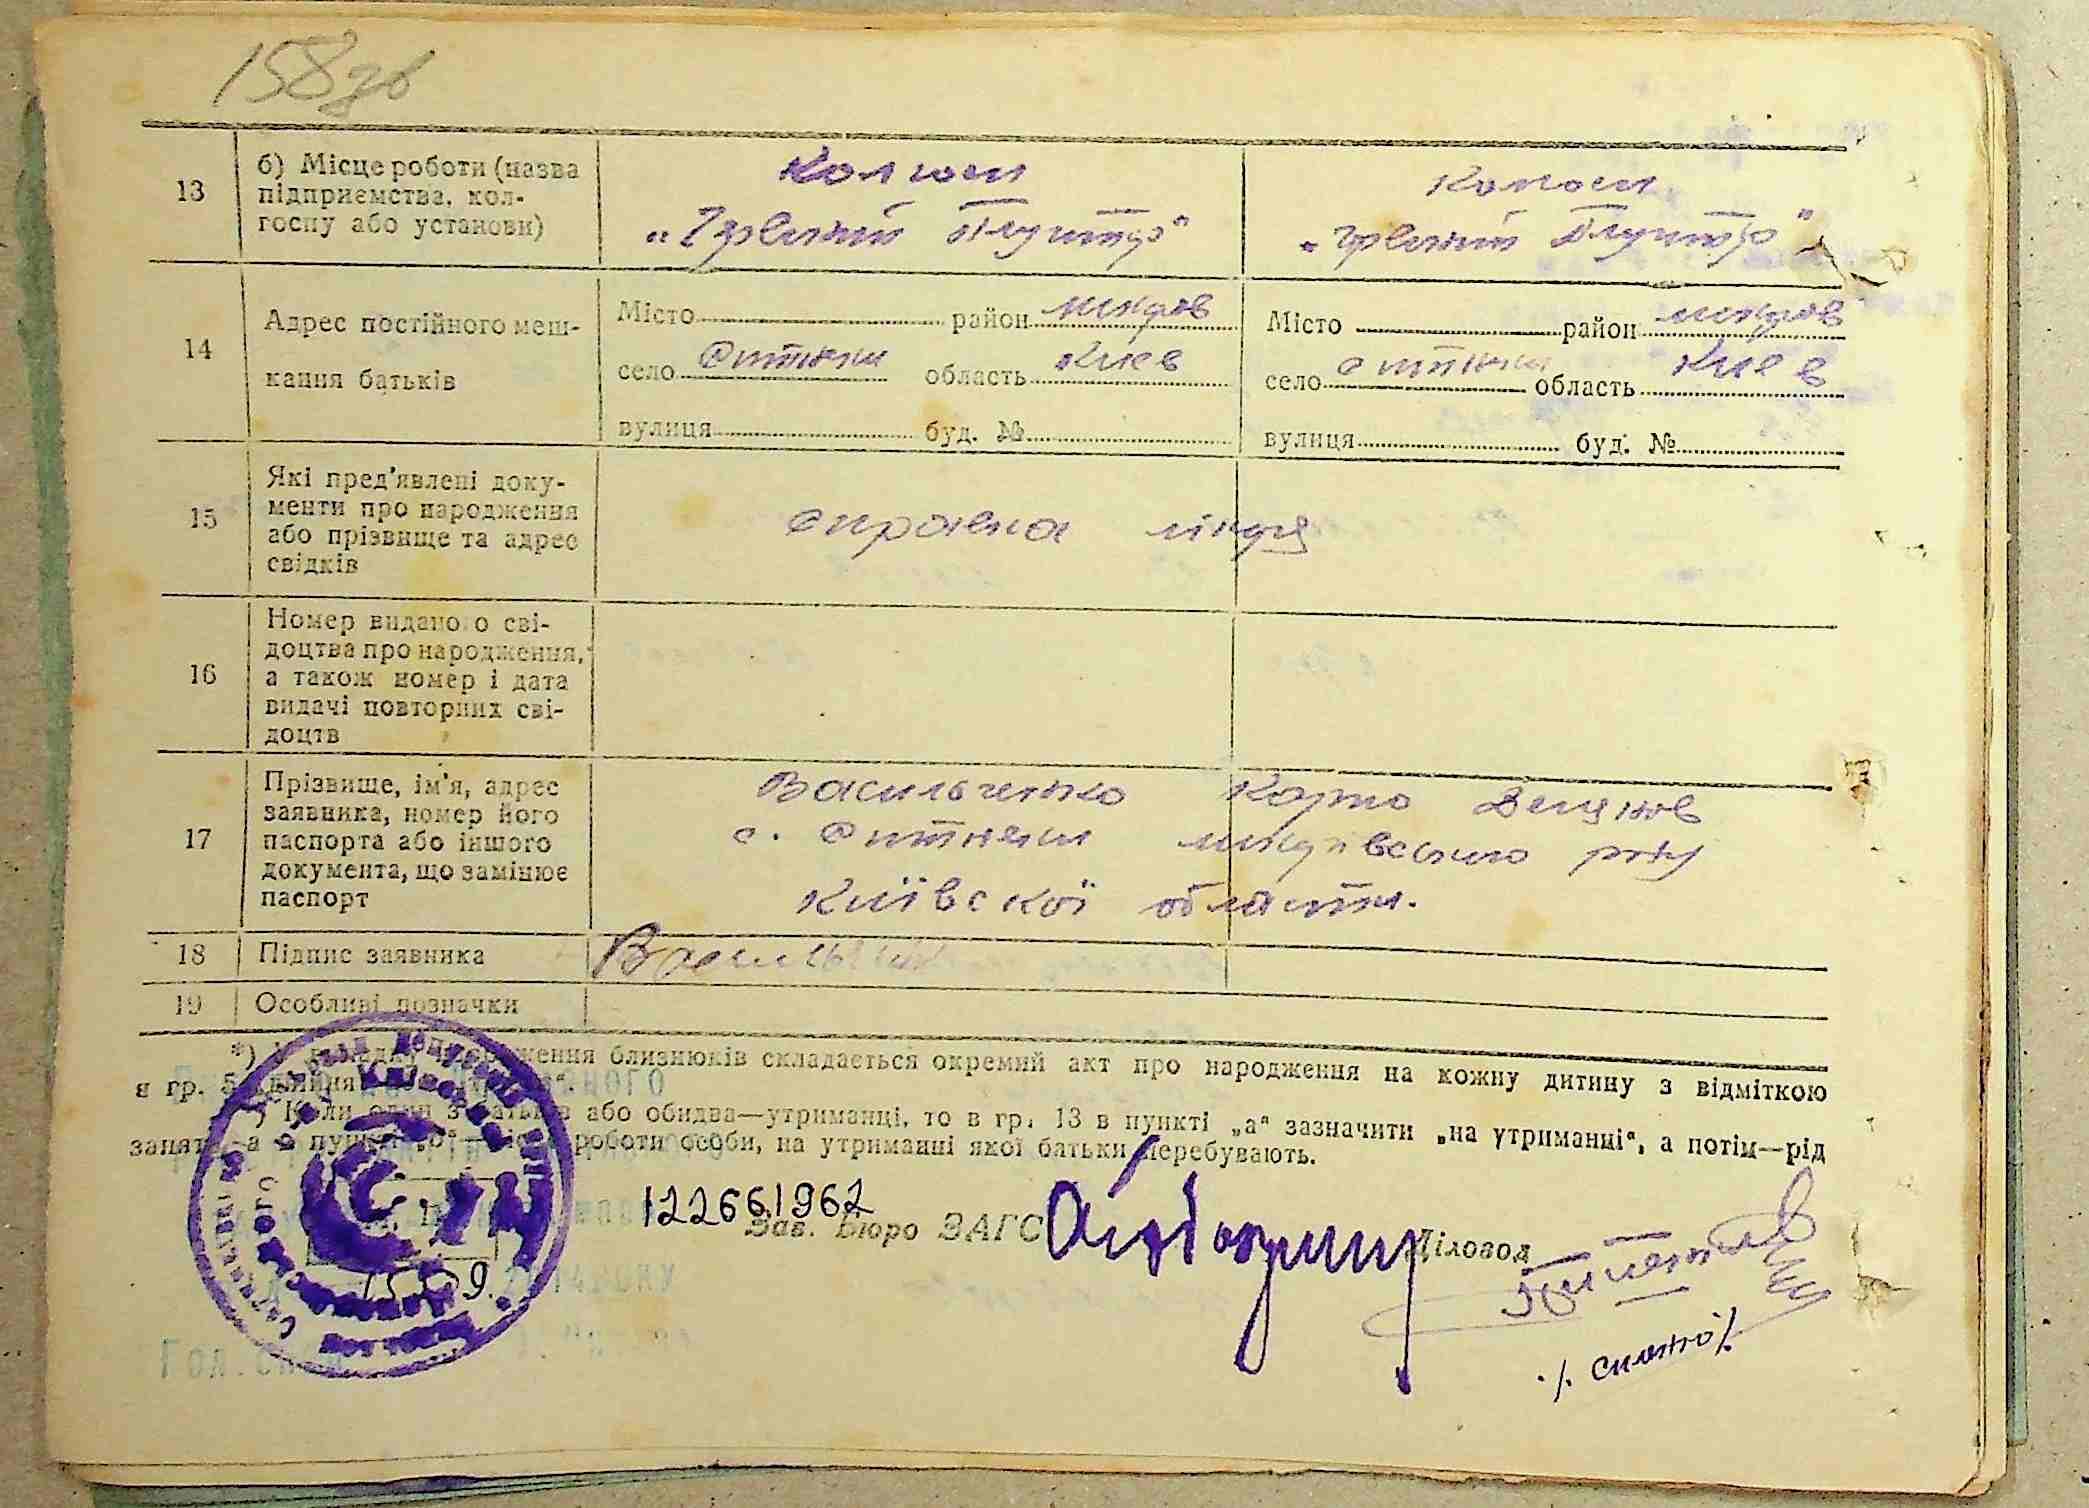 158 зв
13 б) Місце роботи (назва підприємства, колгоспу або установи)
Колгосп
Колгосп
14 Адрес постійного мешкання батьків
Місто район Макров
село Ситняки область Киев
вулиця буд. №
Місто район Макров
село Ситняки область Киев
вулиця буд. №
15 Які пред'явлені документи про народження або прізвище та адрес свідків
справка лікуря
16 Номер виданого свідоцтва про народження, а також номер і дата видачі повторних свідоцтв
17 Прізвище, ім'я, адрес заявника, номер його паспорта або іншого документа, що замінює паспорт
Васильченко Карпо
с. Ситняки
Київскої области.
18 Підпис заявника
19 Особливі позначки
*) У випадку народження близнюків складається окремий акт про народження на кожну дитину з відміткою
в гр. 5
Коли один з батьків або обидва—утриманці, то в гр. 13 в пункті „а“ зазначити „на утриманні“, а потім—рід
роботи особи, на утриманні якої батьки перебувають.
122661962
Зав. Бюро ЗАГС Діловод